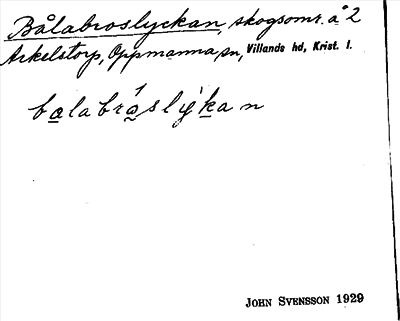 Bålabroslyckan, skogsomr. å 2
Arkelstorp, Oppmanna sn, Villands hd, Krist. l.
balabråslykan
JOHN SVENSSON 1929